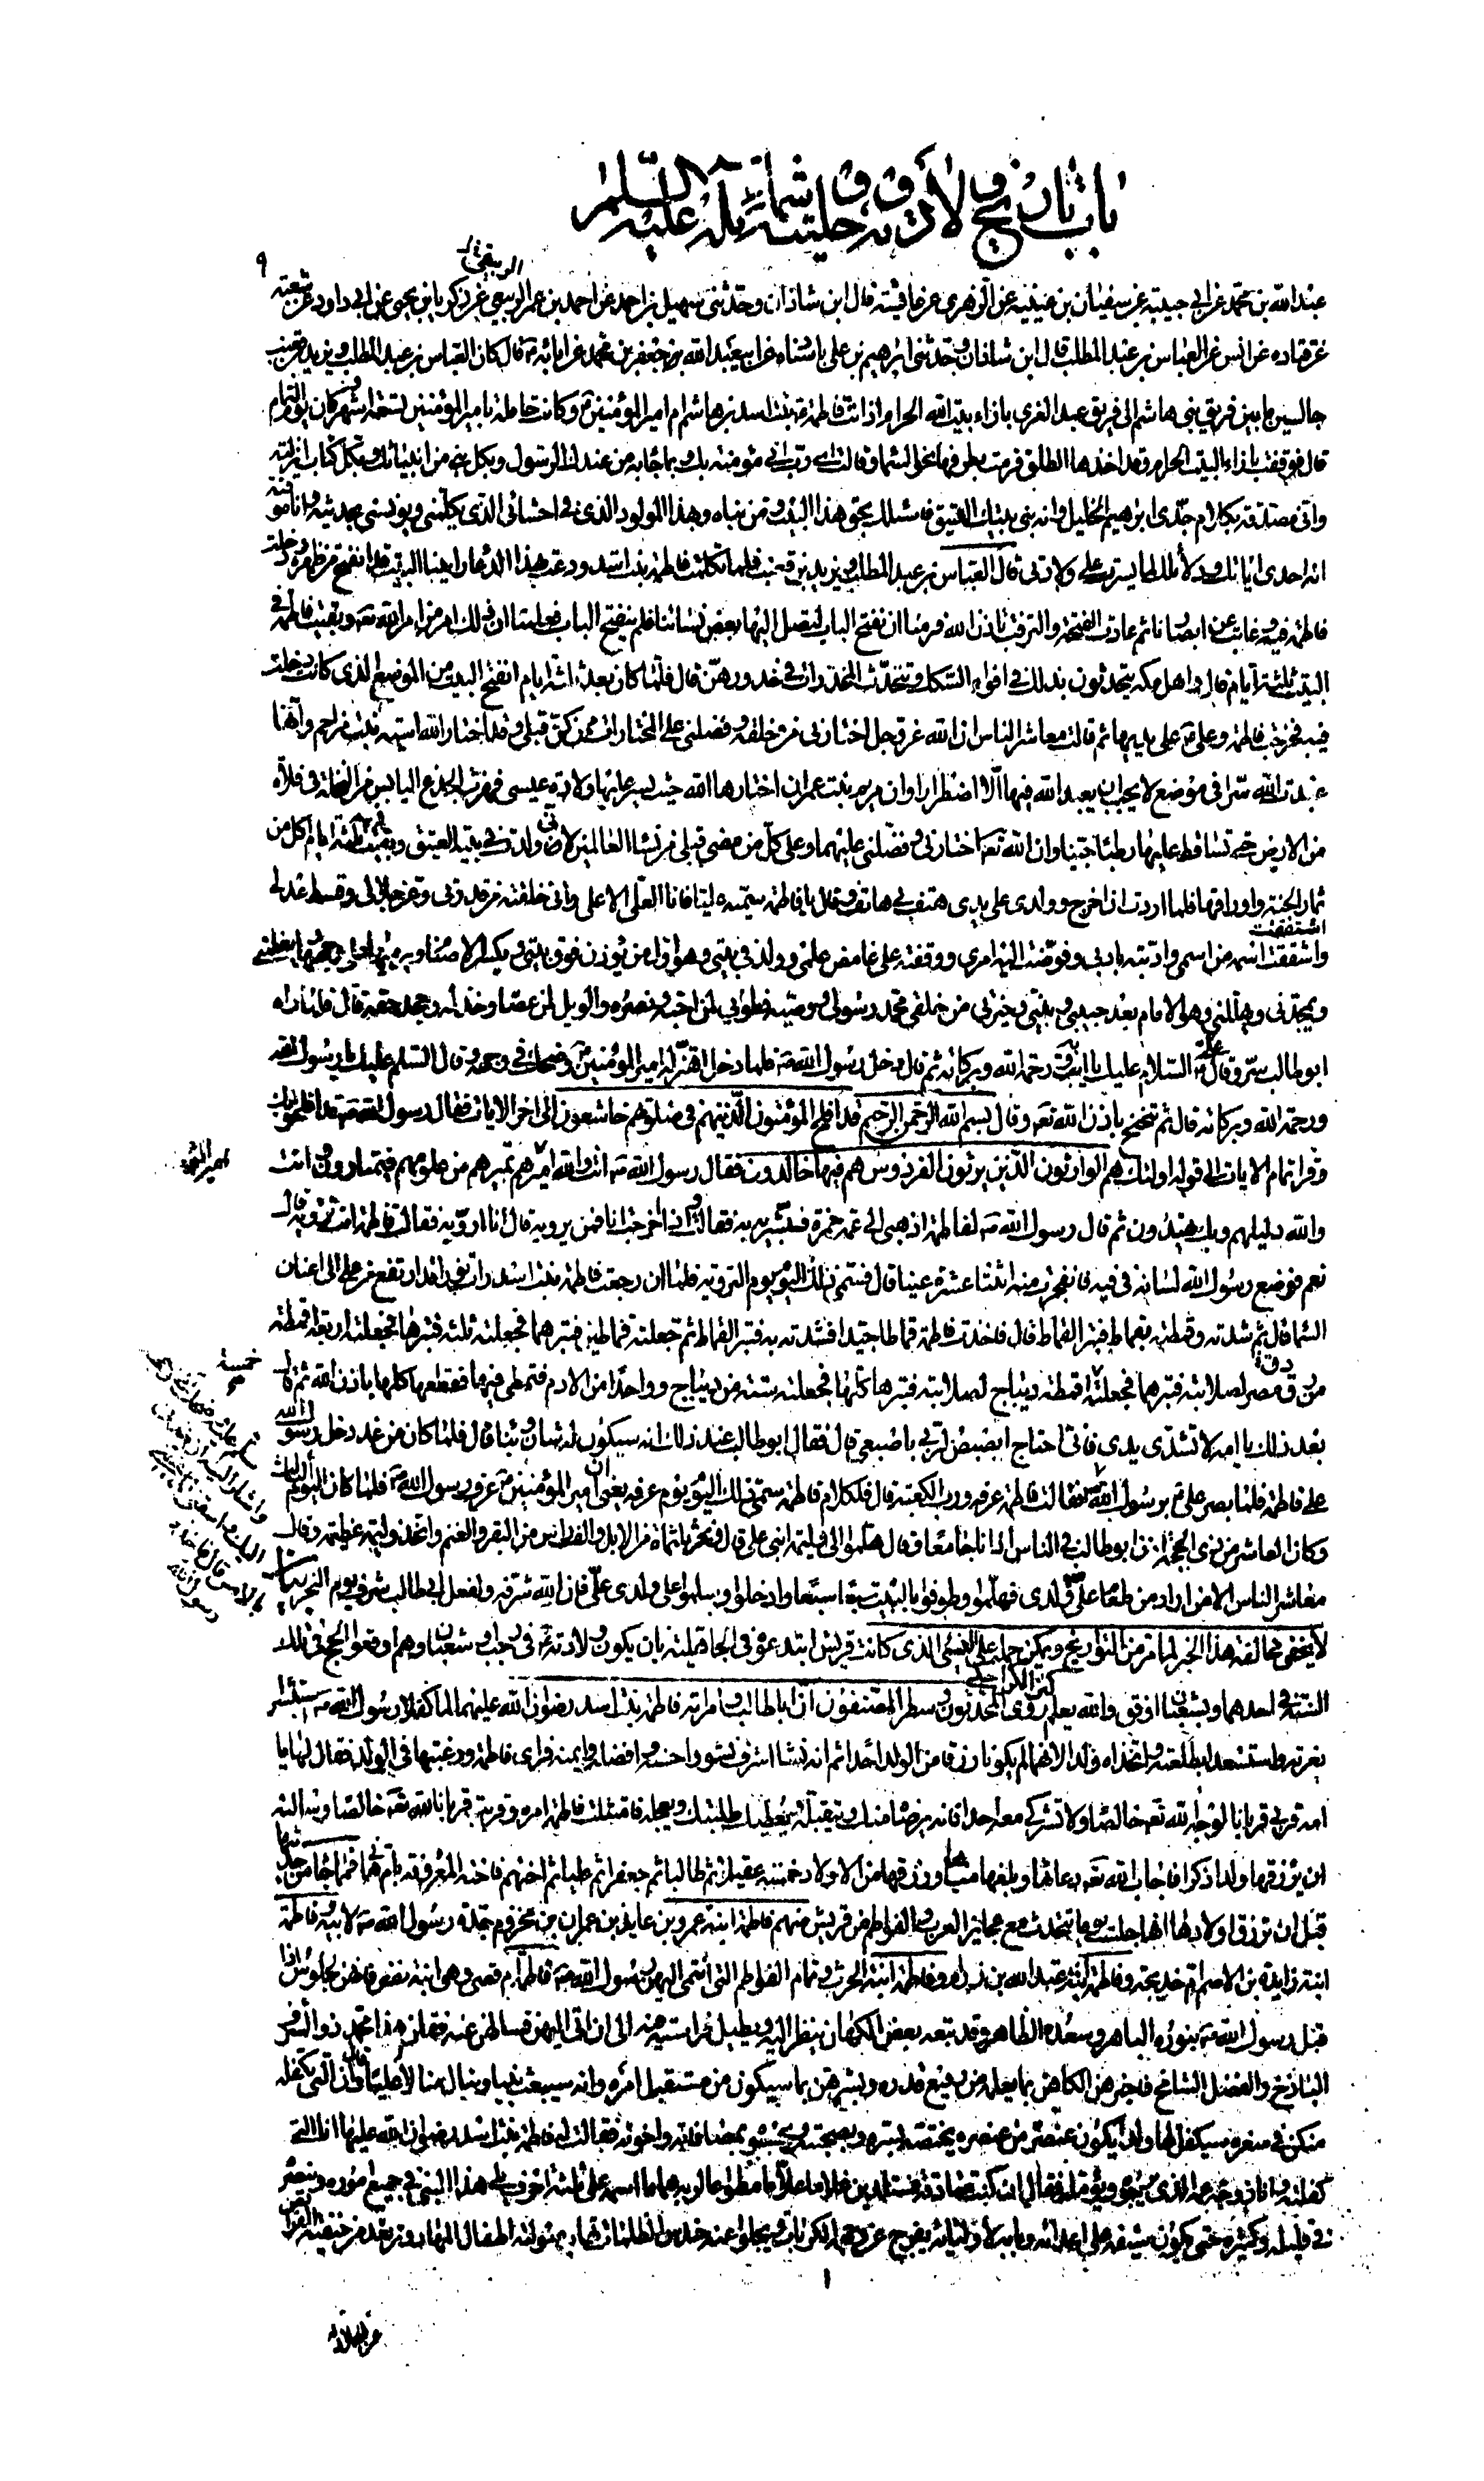 باب تاريخ ولادته و حليته و شمائله عليه السلم
٩
الربيعى
عبد الله بن محمد عن ابى حبيبه عن سفيان بن عيينه عن الزهرى عن عائشة قال ابن شاذان وحدثنى سهيل بن احمد عن احمد بن عمر الربيعى عن زكريا بن يحيى عن ابى داود عن شعبة
عن قتاده عن انس عن العباس بن عبد المطلب قال ابن شاذان وحدثنى ابرهيم بن على باسناده عن ابى عبد الله جعفر بن محمد عن ابائه قال كان العباس بن عبد المطلب ويزيد بن قعنب
جالسين ما بين فريق بنى هاشم الى فريق عبد العزى بازاء بيت الله الحرام اذ اتت فاطمة بنت اسد بن هاشم ام امير المؤمنين وكانت حاملة بامير المؤمنين لتسعة اشهر وكان يوم التمام
قال فوقفت بازاء البيت الحرام وقد اخذها الطلق فرمت بطرفها نحو السماء وقالت اى رب انى مؤمنة بك وبما جاء به من عندك الرسول وبكل نبى من انبيائك وبكل كتاب انزلته
وانى مصدقة بكلام جدى ابرهيم الخليل وانه بنى بيتك العتيق فاسئلك بحق هذا البيت ومن بناه وبهذا المولود الذى فى احشائى الذى يكلمنى ويونسنى بحديثه وانا موقنة
انه احدى اياتك ودلائلك لما يسرت على ولادتى قال العباس بن عبد المطلب ويزيد بن قعنب فلما تكلمت فاطمة بنت اسد ودعت بهذا الدعاء راينا البيت قد انفتح من ظهره ودخلت
فاطمة فيه وغابت عن ابصارنا ثم عادت الفتحة والتزقت باذن الله فرمنا ان نفتح الباب لتصل اليها بعض نسائنا فلم ينفتح الباب فعلمنا ان ذلك امر من امر الله تعه وبقيت فاطمة فى
البيت ثلثة ايام قال واهل مكه يتحدثون بذلك فى افواه السكك وتتحدث المخدرات فى خدورهن قال فلما كان بعد ثلثة ايام انفتح البيت من الموضع الذى كانت دخلت
فيه فخرجت فاطمة وعلى على يديها ثم قالت معاشر الناس ان الله عز وجل اختارنى من خلقه وفضلنى على المختارات ممن كن قبلى وقد اختار الله اسية بنت مزاحم وانها
عبدت الله سرا فى موضع لا يحب ان يعبد الله فيها الا اضطرارا وان مريم بنت عمران اختارها الله حيث يسر عليها ولادة عيسى فهزت الجذع اليابس من النخلة فى فلاة
من الارض حتى تساقط عليها رطبا جنيا وان الله تعه اختارنى وفضلنى عليهما وعلى كل من مضى قبلى من نساء العالمين لانى ولدت فى بيته العتيق وبقيت فيه ثلثة ايام اكل من
ثمار الجنة واوراقها فلما اردت ان اخرج وولدى على يدى هتف بى هاتف وقال يا فاطمة سميه عليا فانا العلى الاعلى وانى خلقته من قدرتى وعز جلالى وقسط عدلى
اشتققت
واشققت اسمه من اسمى وادبته بادبى وفوضت اليه امرى ووقفته على غامض علمى وولد فى بيتى وهو اول من يؤذن فوق بيتى ويكسر الاصنام ويرميها على وجهها ويعظمنى
ويمجدنى ويهللنى وهو الامام بعد حبيبى ونبيى وخيرتى من خلقى محمد رسولى ووصيه فطوبى لمن احبه ونصره والويل لمن عصاه وخذله وجحد حقه قال فلما راه
ابو طالب سر وقال على السلام عليك يا ابه ورحمة الله وبركاته ثم قال دخل رسول الله ص فلما دخل اهتز له امير المؤمنين وضحك فى وجهه وقال السلم عليك يا رسول الله
ورحمة الله وبركاته قال ثم تنحنح باذن الله تعه وقال بسم الله الرحمن الرحيم قد افلح المؤمنون الذينهم فى صلوتهم خاشعون الى اخر الايات فقال رسول الله ص قد افلحوا بك
وقرا تمام الايات الى قوله اولئك هم الوارثون الذين يرثون الفردوس هم فيها خالدون فقال رسول الله ص انت والله اميرهم تميرهم من علومهم فيمتارون وانت
والله دليلهم وبك يهتدون ثم قال رسول الله ص لفاطمة اذهبى الى عمه حمزة فبشريه به فقالت فاذا خرجت انا فمن يرويه قال انا ارويه فقالت فاطمة انت ترويه قال
نعم فوضع رسول الله لسانه فى فيه فانفجرت منه اثنتا عشرة عينا قال فسمى ذلك اليوم يوم التروية فلما ان رجعت فاطمة بنت اسد رات نورا قد ارتفع من على الى اعنان
السماء قال ثم شدته وقمطته بقماط فبتر القماط قال فاخذت فاطمة قماطا جيدا فشدته به فبتر القماط ثم جعلته قماطين فبترهما فجعلته ثلثة فبترها فجعلته اربعة اقمطة
من رق مصر لصلابته فبترها فجعلته اقمطة ديباج لصلابته فبترها كلها فجعلته ستة من ديباج وواحدا من الادم فتمطى فيها فقطعها كلها باذن الله ثم قال
بعد ذلك يا امه لا تشدى يدى فانى احتاج ابصبص لربى باصبعى قال فقال ابو طالب عند ذلك انه سيكون له شان ونبا قال فلما كان من غد دخل رسول الله
على فاطمة فلما بصر على برسول الله
فقالت فاطمة عرفه ورب الكعبة قال فلكلام فاطمة سمى ذلك اليوم يوم عرفه يعنى ان امير المؤمنين عرف رسول الله فلما كان اليوم الثالث
وكان العاشر من ذى الحجة اذن ابو طالب فى الناس اذانا جامعا وقال هلموا الى وليمة ابنى على قال ونحر ثلثمائة من الابل والف راس من البقر والغنم واتخذ وليمة عظيمة وقال
معاشر الناس الا من اراد من طعام على ولدى فهلموا وطوفوا بالبيت سبعا وادخلوا وسلموا على ولدى على فان الله شرفه ولفعل ابى طالب شرف يوم النحر بيان
لا يخفى مخالفة هذا الخبر لما مر من التواريخ ويمكن حمله على النسىء الذى كانت قريش ابتدعوه فى الجاهلية بان يكون ولادته فى رجب او شعبان وهم اوقعوا الحج فى تلك
السنة فى احدهما وبشعبان اوفق والله يعلم
كنز الكراجكى
روى المحدثون وسطر المصنفون ان ابا طالب وامراته فاطمة بنت اسد رضوان الله عليهما لما كفلا رسول الله ص استبشرا
بغرته واستسعدا بطلعته واتخذاه ولدا لانهما لم يكونا رزقا من الولد احدا ثم انه نشا اشرف نشو واحسنه وافضله وايمنه فراى فاطمة ورغبتها فى الولد فقال لها يا
امه قربى قربانا لوجه الله تعه خالصا ولا تشركى معه احدا فانه يرضاه منك ويتقبله ويعطيك طلبتك ويعجله فامتثلت فاطمة امره وقربت قربانا لله تعه خالصا وسالته
ان يرزقها ولدا ذكرا فاجاب الله تعه دعاءها وبلغها مناها ورزقها من الاولاد خمسة عقيلا ثم طالبا ثم جعفرا ثم عليا ثم اختهم فاخته المعروفة بام هانى فمما جاء من حديثها
قبل ان ترزق اولادها انها جلست يوما تتحدث مع عجايز العرب والفواطم من قريش منهم فاطمة ابنة عمرو بن عايذ بن عمران بن مخزوم جدة رسول الله ص لابيه وفاطمة
ابنة زايدة بن الاصم ام خديجة وفاطمة ابنة عبد الله بن رزام وفاطمة ابنة الحرث وتمام الفواطم التى انتمى اليهن رسول الله ص فاطمة ام قصى وهى ابنة نضر فانهن لجلوس اذا
قبل رسول الله ص بنوره الباهر وسعده الظاهر وقد تبعه بعض الكهان ينظر اليه ويطيل فراسته فيه الى ان اتى اليهن فسالهن عنه فقلن هذا محمد ذو الشرف
الباذخ والفضل الشامخ فاخبرهن الكاهن بما يعلمه من رفيع قدره وبشرهن بما سيكون من مستقبل امره وانه سيبعث نبيا وينال منالا عليا قال وان التى تكفله
منكن فى صغره سيكفل لها ولدا يكون عنصره من عنصره يختصه بسره وبصحبته ويحبوه بمصافاته واخوته فقالت له فاطمة بنت اسد رضوان الله عليها انا التى
كفلته وانا زوجة عمه الذى يرجوه ويؤمله فقال ان كنت صادقة فستلدين غلاما علاما مطواعا لربه هماما اسمه على ثلثة احرف يلى هذا النبى فى جميع اموره وينصره
فى قليله وكثيره حتى يكون سيفه على اعدائه وبابه لاوليائه يفرج عن وجهه الكربات ويجلو عنه حندس الظلمات تهاب صولته اطفال المهاد وترتعد من خيفته الفرائص